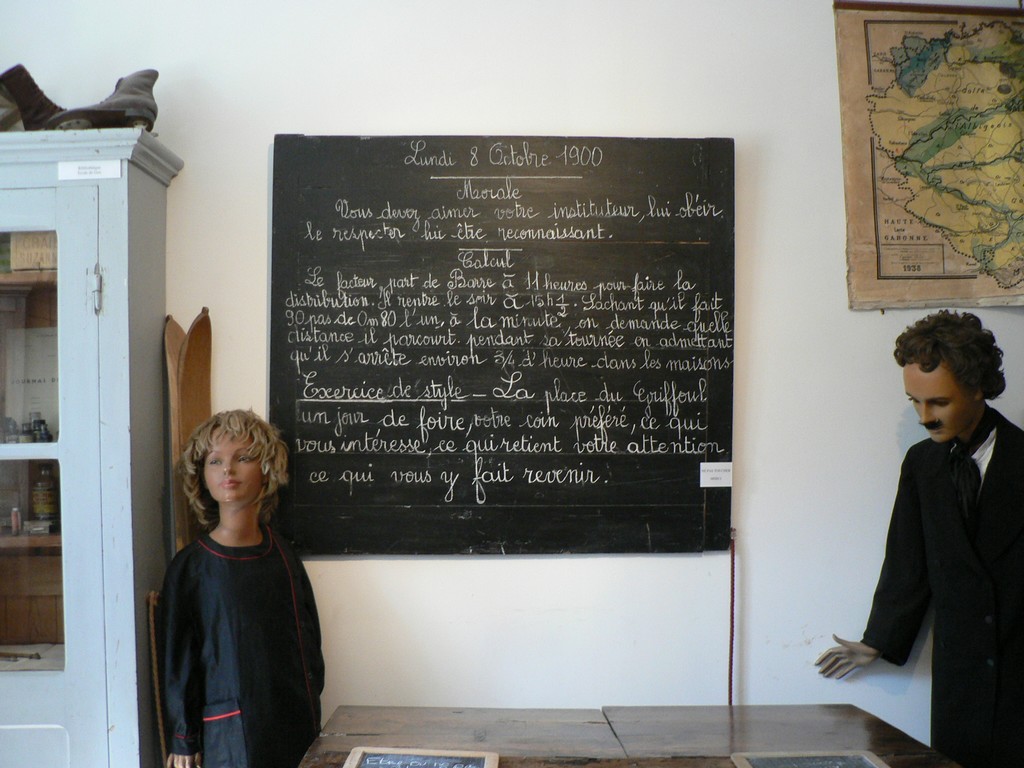 Lundi 8 Octobre 1900
Morale
Vous devez aimer votre instituteur, lui obéir
le respecter lui être reconnaissant.
Calcul
Le facteur part de Barre à 11 heures pour faire la
distribution. Il rentre le soir à 15h 1/2. Sachant qu'il fait
90 pas de 0m80 l'un, à la minute, on demande quelle
distance il parcourt pendant sa tournée en admettant
qu'il s'arrête environ 3/4 d'heure dans les maisons
Exercice de style - La place du Griffoul
un jour de foire, votre coin préféré, ce qui
vous intéresse, ce qui retient votre attention
ce qui vous y fait revenir.
HAUTE
GARONNE
1938
JOURNAL